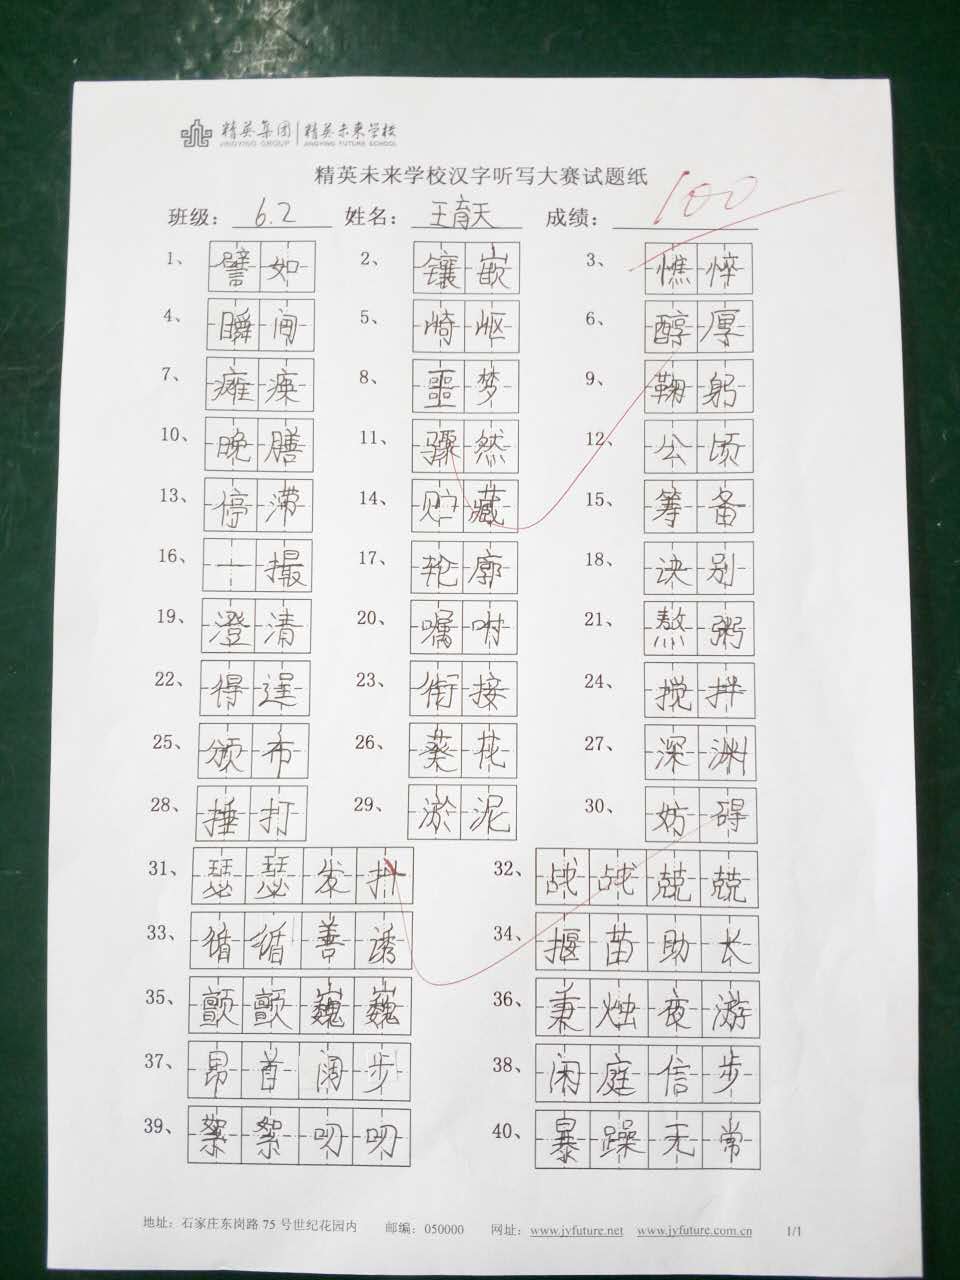 精英集团 精英未来学校
JINGYING GROUP JINGYING FUTURE SCHOOL
精英未来学校汉字听写大赛试题纸
班级： 6.2 姓名： 王育天 成绩： 100
1、 譬如 2、 镶嵌 3、 憔悴
4、 瞬间 5、 崎岖 6、 醇厚
7、 瘫痪 8、 噩梦 9、 鞠躬
10、 晚膳 11、 骤然 12、 公顷
13、 停滞 14、 贮藏 15、 筹备
16、 一撮 17、 轮廓 18、 诀别
19、 澄清 20、 嘱咐 21、 熬粥
22、 得逞 23、 衔接 24、 搅拌
25、 颁布 26、 葵花 27、 深渊
28、 捶打 29、 淤泥 30、 妨碍
31、 瑟瑟发抖 32、 战战兢兢
33、 循循善诱 34、 揠苗助长
35、 颤颤巍巍 36、 秉烛夜游
37、 昂首阔步 38、 闲庭信步
39、 絮絮叨叨 40、 暴躁无常
地址：石家庄东岗路 75 号世纪花园内 邮编：050000 网址：www.jyfuture.net www.jyfuture.com.cn 1/1